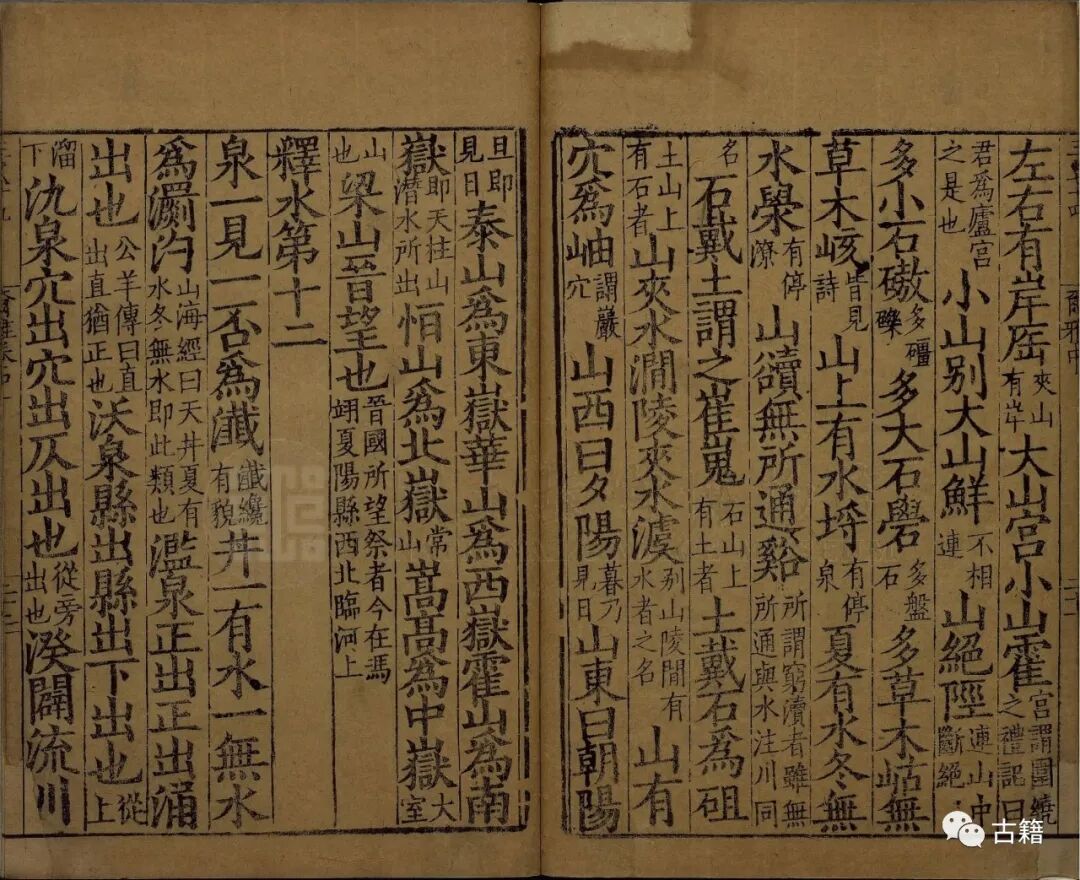 左右有岸厒夾山有岸大山宮小山霍宮謂圍繞之禮記曰
君爲廬宮之是也小山別大山鮮不相連山絕陘連山中斷絕
多小石磝多礓礫多大石礐多盤石多草木岵無
草木峐皆見詩山上有水埒有停泉夏有水冬無
水澩有停潦山㟋無所通谿所謂窮瀆者雖無所通與水注川同
名石戴土謂之崔嵬石山上有土者土戴石爲砠
土山上有石者山夾水澗陵夾水澞別山陵間有水者之名山有
穴爲岫謂巖穴山西曰夕陽暮乃見日山東曰朝陽
旦即見日泰山爲東嶽華山爲西嶽霍山爲南
嶽即天柱山潛水所出恒山爲北嶽常山嵩高爲中嶽大室
山也梁山晉望也晉國所望祭者今在馮翊夏陽縣西北臨河上
釋水第十二
泉一見一否爲瀸瀸纔有貌井一有水一無水
爲瀱汋山海經曰天井夏有水冬無水即此類也濫泉正出正出涌
出也公羊傳曰直出直猶正也沃泉縣出縣出下出也從上
溜下氿泉穴出穴出仄出也從旁出也湀闢流川
古籍